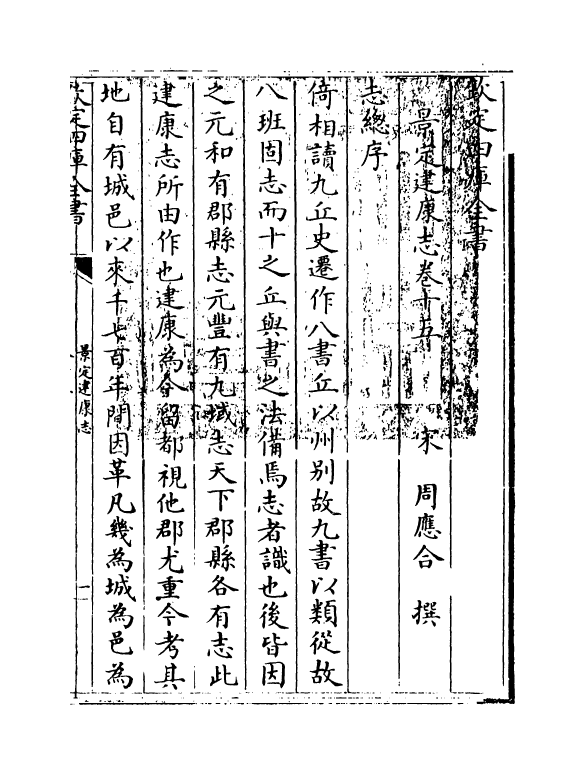 欽定四庫全書
景定建康志卷十五
宋 周應合 撰
志總序
倚相讀九丘史遷作八書丘以州別故九書以類從故
八班固志而十之丘與書之法備焉志者識也後皆因
之元和有郡縣志元豐有九域志天下郡縣各有志此
建康志所由作也建康為今留都視他郡尤重今考其
地自有城邑以來千七百年間因革凡幾為城為邑為
欽定四庫全書
景定建康志
一